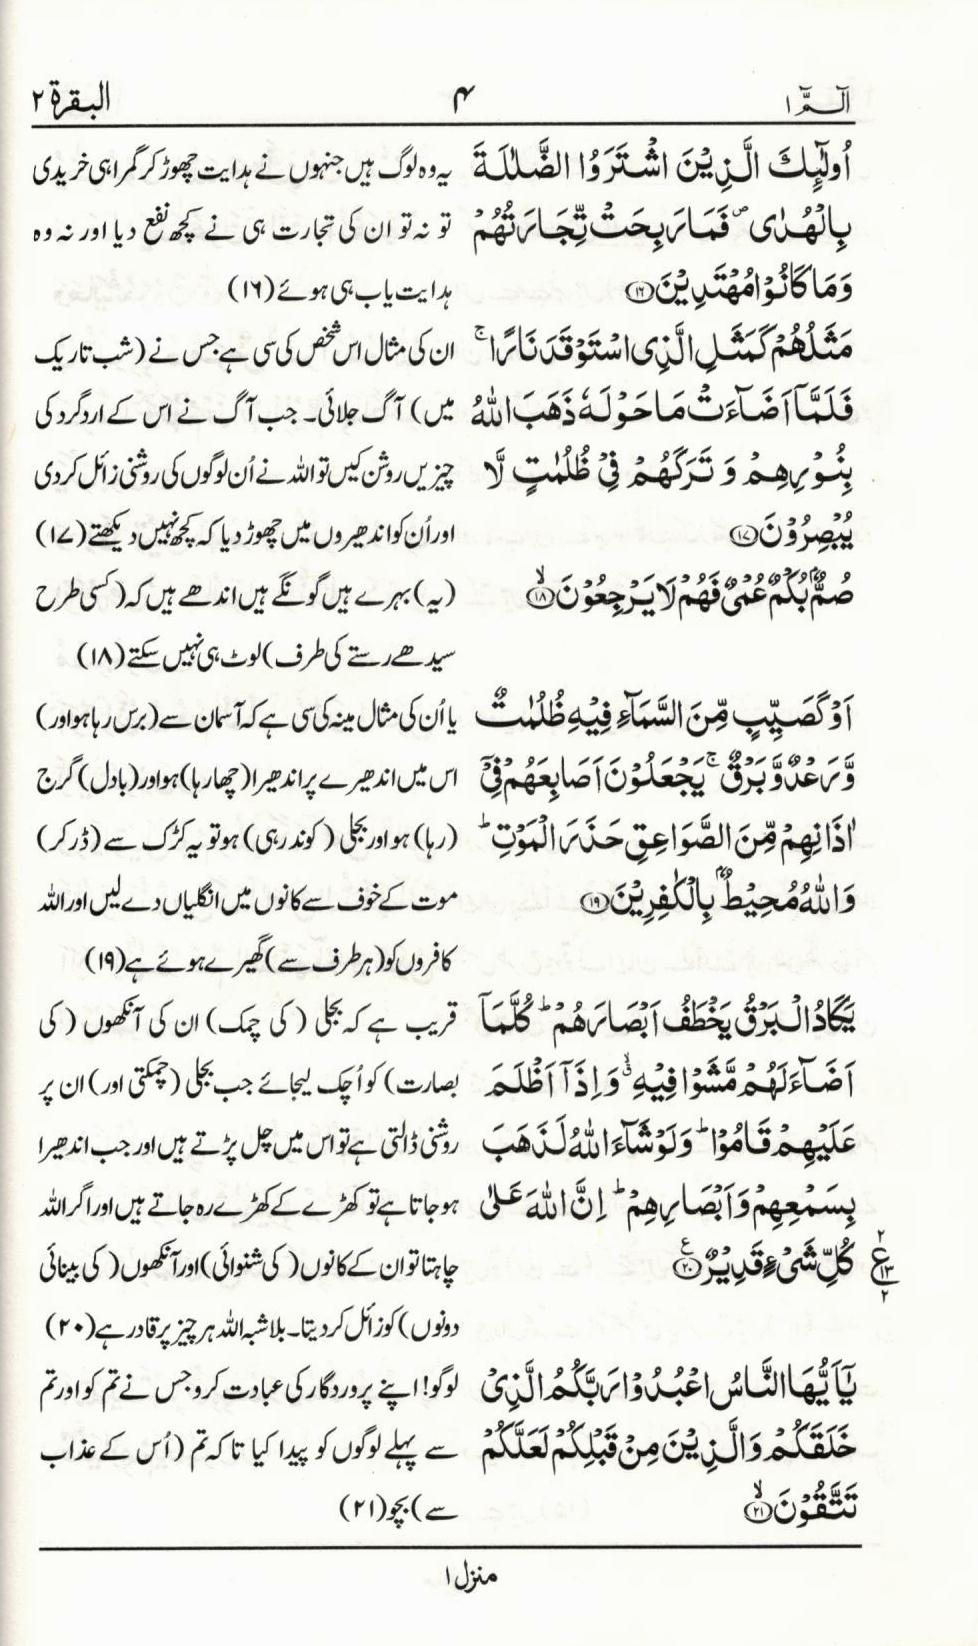 الٓـمّٓ ۱
۴
البقرة ۲
اُولٰٓئِكَ الَّذِيْنَ اشْتَرَوُا الضَّلٰلَةَ
بِالْهُدٰى ۪ فَمَا رَبِحَتْ تِّجَارَتُهُمْ
وَمَا كَانُوْا مُهْتَدِيْنَ ۝۱۶
مَثَلُهُمْ كَمَثَلِ الَّذِى اسْتَوْقَدَ نَارًا ۚ
فَلَمَّآ اَضَآءَتْ مَا حَوْلَهٗ ذَهَبَ اللّٰهُ
بِنُوْرِهِمْ وَ تَرَكَهُمْ فِيْ ظُلُمٰتٍ لَّا
يُبْصِرُوْنَ ۝۱۷
صُمٌّۢ بُكْمٌ عُمْيٌ فَهُمْ لَا يَرْجِعُوْنَ ۝۱۸ۙ
اَوْ كَصَيِّبٍ مِّنَ السَّمَآءِ فِيْهِ ظُلُمٰتٌ
وَّرَعْدٌ وَّبَرْقٌ ۚ يَجْعَلُوْنَ اَصَابِعَهُمْ فِيْٓ
اٰذَانِهِمْ مِّنَ الصَّوَاعِقِ حَذَرَ الْمَوْتِ ؕ
وَاللّٰهُ مُحِيْطٌۢ بِالْكٰفِرِيْنَ ۝۱۹
يَكَادُ الْبَرْقُ يَخْطَفُ اَبْصَارَهُمْ ؕ كُلَّمَآ
اَضَآءَ لَهُمْ مَّشَوْا فِيْهِ ۙ وَاِذَآ اَظْلَمَ
عَلَيْهِمْ قَامُوْا ؕ وَلَوْ شَآءَ اللّٰهُ لَذَهَبَ
بِسَمْعِهِمْ وَاَبْصَارِهِمْ ؕ اِنَّ اللّٰهَ عَلٰى
كُلِّ شَيْءٍ قَدِيْرٌ ۝۲۰ۧ
۲
ع
۱۳
۲
يٰٓاَيُّهَا النَّاسُ اعْبُدُوْا رَبَّكُمُ الَّذِيْ
خَلَقَكُمْ وَالَّذِيْنَ مِنْ قَبْلِكُمْ لَعَلَّكُمْ
تَتَّقُوْنَ ۝۲۱ۙ
یہ وہ لوگ ہیں جنہوں نے ہدایت چھوڑ کر گمراہی خریدی
تو نہ تو ان کی تجارت ہی نے کچھ نفع دیا اور نہ وہ
ہدایت یاب ہی ہوئے (۱۶)
ان کی مثال اس شخص کی سی ہے جس نے (شب تاریک
میں) آگ جلائی۔ جب آگ نے اس کے اردگرد کی
چیزیں روشن کیں تو اللہ نے اُن لوگوں کی روشنی زائل کر دی
اور اُن کو اندھیروں میں چھوڑ دیا کہ کچھ نہیں دیکھتے (۱۷)
(یہ) بہرے ہیں گونگے ہیں اندھے ہیں کہ (کسی طرح
سیدھے رستے کی طرف) لوٹ ہی نہیں سکتے (۱۸)
یا اُن کی مثال مینہ کی سی ہے کہ آسمان سے (برس رہا ہو اور)
اس میں اندھیرے پر اندھیرا (چھا رہا) ہو اور (بادل) گرج
(رہا) ہو اور بجلی (کوند رہی) ہو تو یہ کڑک سے (ڈر کر)
موت کے خوف سے کانوں میں انگلیاں دے لیں اور اللہ
کافروں کو (ہر طرف سے) گھیرے ہوئے ہے (۱۹)
قریب ہے کہ بجلی (کی چمک) ان کی آنکھوں (کی
بصارت) کو اُچک لیجائے جب بجلی (چمکتی اور) ان پر
روشنی ڈالتی ہے تو اس میں چل پڑتے ہیں اور جب اندھیرا
ہو جاتا ہے تو کھڑے کے کھڑے رہ جاتے ہیں اور اگر اللہ
چاہتا تو ان کے کانوں (کی شنوائی) اور آنکھوں (کی بینائی
دونوں) کو زائل کر دیتا۔ بلاشبہ اللہ ہر چیز پر قادر ہے (۲۰)
لوگو! اپنے پروردگار کی عبادت کرو جس نے تم کو اور تم
سے پہلے لوگوں کو پیدا کیا تاکہ تم (اُس کے عذاب
سے) بچو (۲۱)
منزل ۱